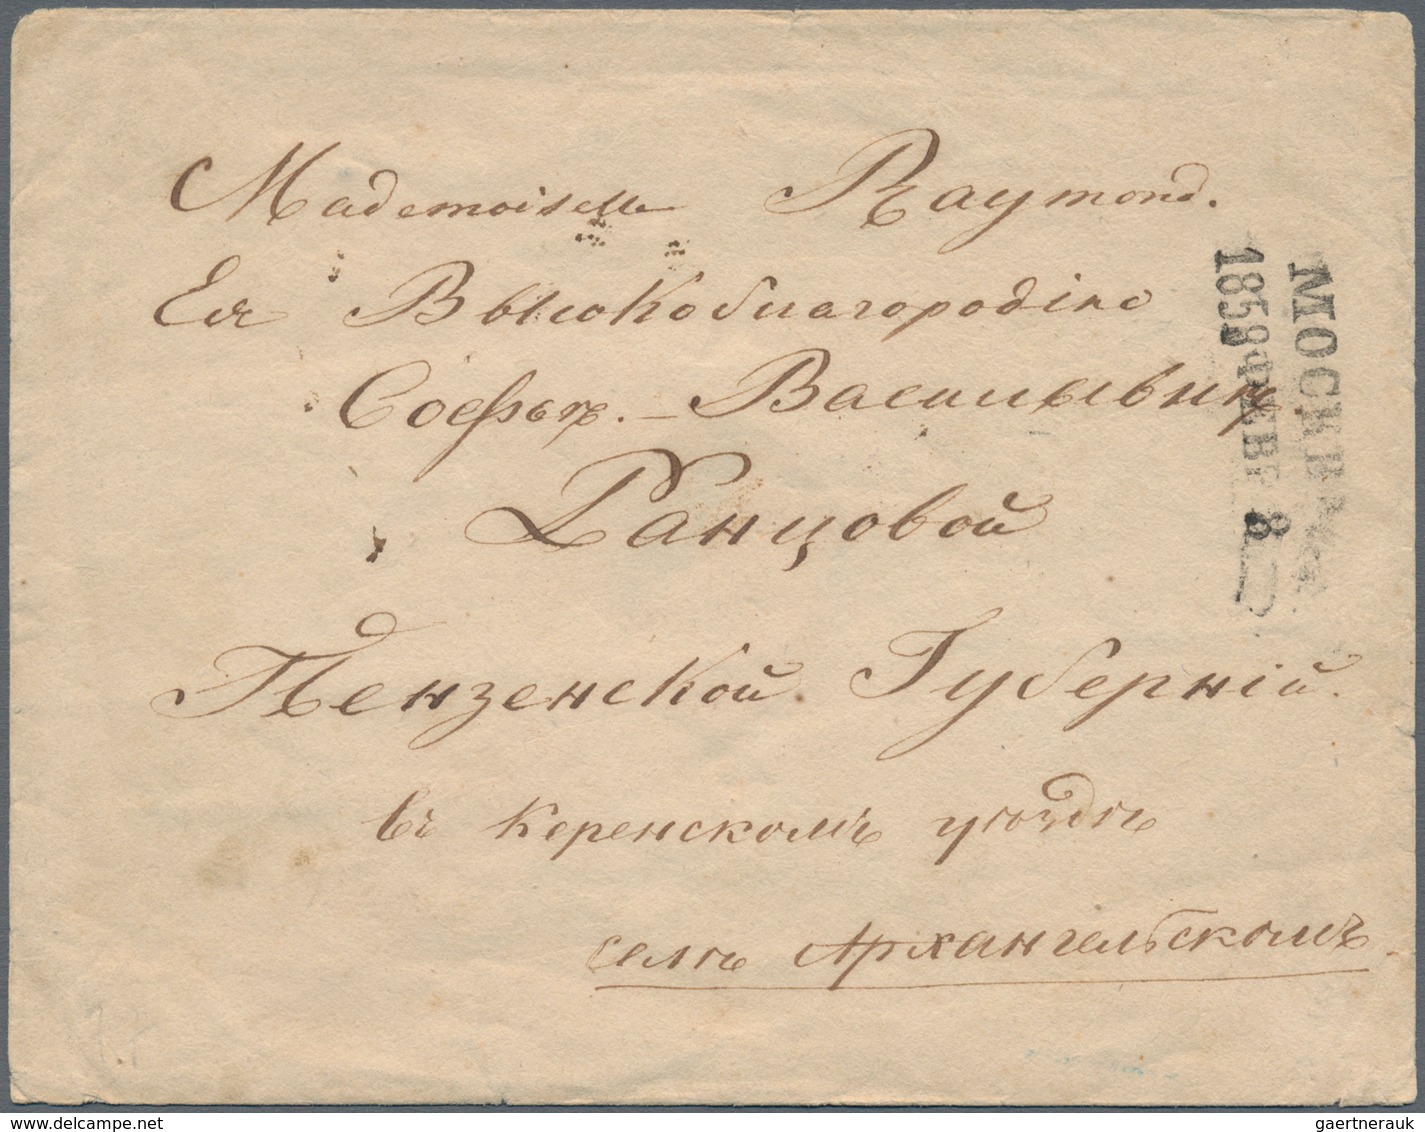 Mademoiselle Raymond.
Ея Высокоблагородію
Софьѣ. – Васильвнѣ
Ранцовой
Пензенской Губерній.
въ Керенскомъ уѣздѣ
селѣ Архангельскомъ
МОСКВА
1859 ФЕВР 8
gaertnerauk@delcampe.net